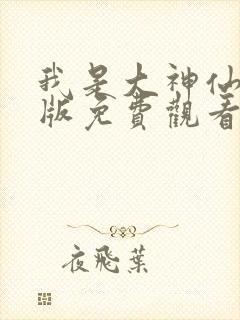 我是大神仙
版免費觀看
夜飛葉